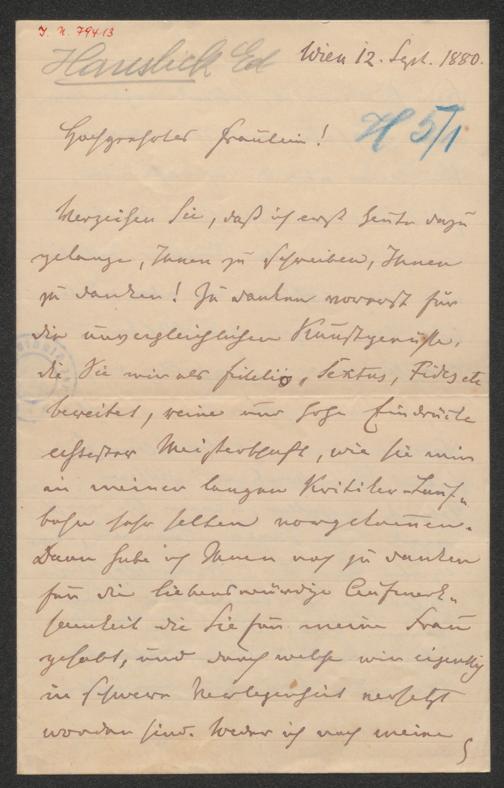 I. N. 79413
Hanslick Ed
Wien 12. Sept. 1880.
H 5/1
Hochgeehrtes Fräulein!
Verzeihen Sie, daß ich erst heute dazu
gelange, Ihnen zu schreiben, Ihnen
zu danken! Zu danken vorerst für
die unvergleichlichen Kunstgenüsse,
die Sie mir als Fidelio, Sextus, Fides etc
bereitet, reine und hohe Eindrücke
echtester Meisterschaft, wie sie mir
in meiner langen Kritiker-Lauf-
bahn sehr selten vorgekommen.
Dann habe ich Ihnen noch zu danken
für die liebenswürdige Aufmerk-
samkeit die Sie für meine Frau
gehabt, und durch welche wir eigentlich
in schwere Verlegenheit versetzt
worden sind. Weder ich noch meine